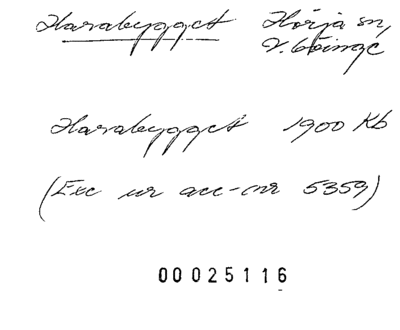 Harabygget Hörja sn,
V. Göinge
Harabygget 1900 Kb
(Exc ur acc-nr 5359)
00025116